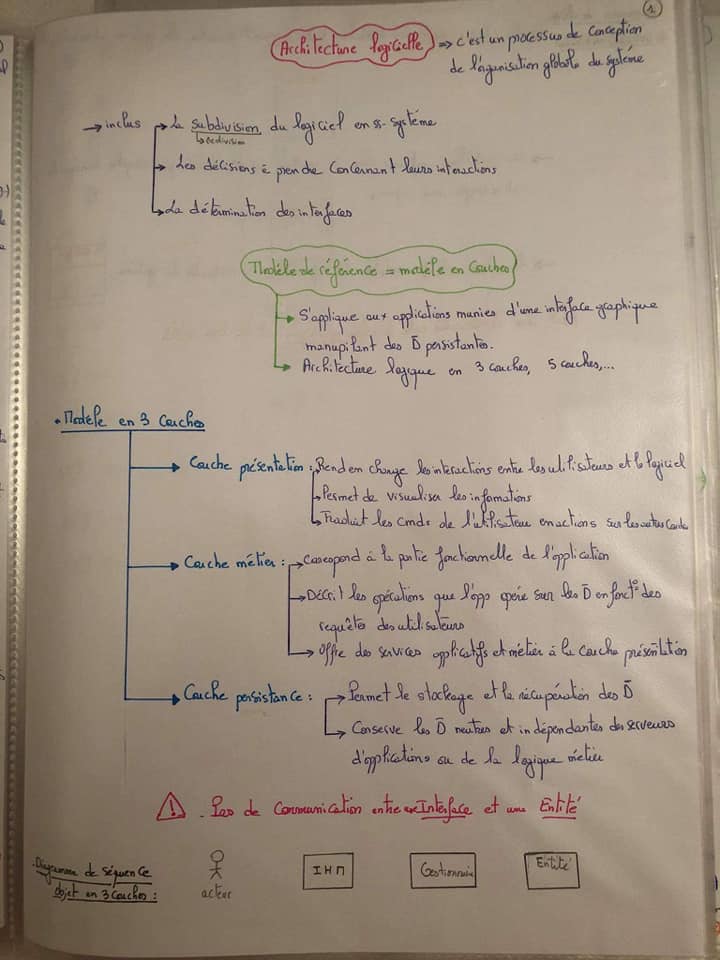 1
Architecture logicielle => c'est un processus de conception
de l'organisation globale du système
→ inclus → La subdivision du logiciel en ss-système
↳ division
→ Les décisions à prendre concernant leurs interactions
→ La détermination des interfaces
Modèle de référence = modèle en couches
→ S'applique aux applications munies d'une interface graphique
manupilant des D̄ persistantes.
→ Architecture logique en 3 couches, 5 couches,...
• Modèle en 3 couches
→ Couche présentation : → Rend en charge les interactions entre les utilisateurs et le logiciel
→ Permet de visualiser les informations
→ Traduit les cmds de l'utilisateur en actions sur les autres couches
→ Couche métier : → Correspond à la partie fonctionnelle de l'application
→ Décrit les opérations que l'app opère sur les D̄ en fonct° des
requêtes des utilisateurs
→ Offre des services applicatifs et métier à la couche présentation
→ Couche persistance : → Permet le stockage et la récupération des D̄
→ Conserve les D̄ neutres et indépendantes des serveurs
d'applications ou de la logique métier
⚠ . Pas de communication entre une Interface et une Entité
. Diagramme de séquence
objet en 3 couches :
acteur
IHM
Gestionnaire
Entité